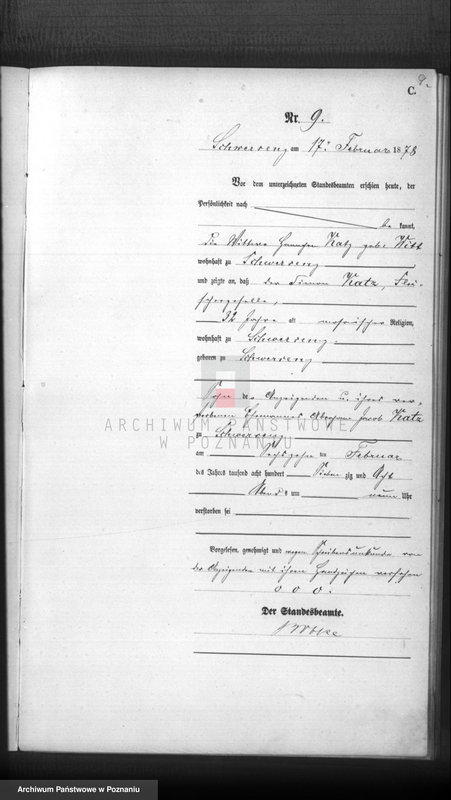 9.
C.
Nr. 9.
Schwersenz am 17. Februar 1878
Vor dem unterzeichneten Standesbeamten erschien heute, der
Persönlichkeit nach
be kannt,
die Wittwe Katz geb. Witt
wohnhaft zu Schwersenz
und zeigte an, daß der Simon Katz, Flei-
schergeselle,
32 Jahre alt mosaischer Religion,
wohnhaft zu Schwersenz
geboren zu Schwersenz
Sohn der Anzeigenden u. ihres ver-
storbenen Ehemannes Abraham Jacob Katz
zu Schwersenz
am Sechszehn ten Februar
des Jahres tausend acht hundert Sieben zig und Acht
Abends um neun Uhr
verstorben sei
Vorgelesen, genehmigt und wegen Schreibensunkunde von
der Anzeigenden mit ihrem Handzeichen versehen
o o o.
Der Standesbeamte.
ARCHIWUM PAŃSTWOWE
W POZNANIU
Archiwum Państwowe w Poznaniu